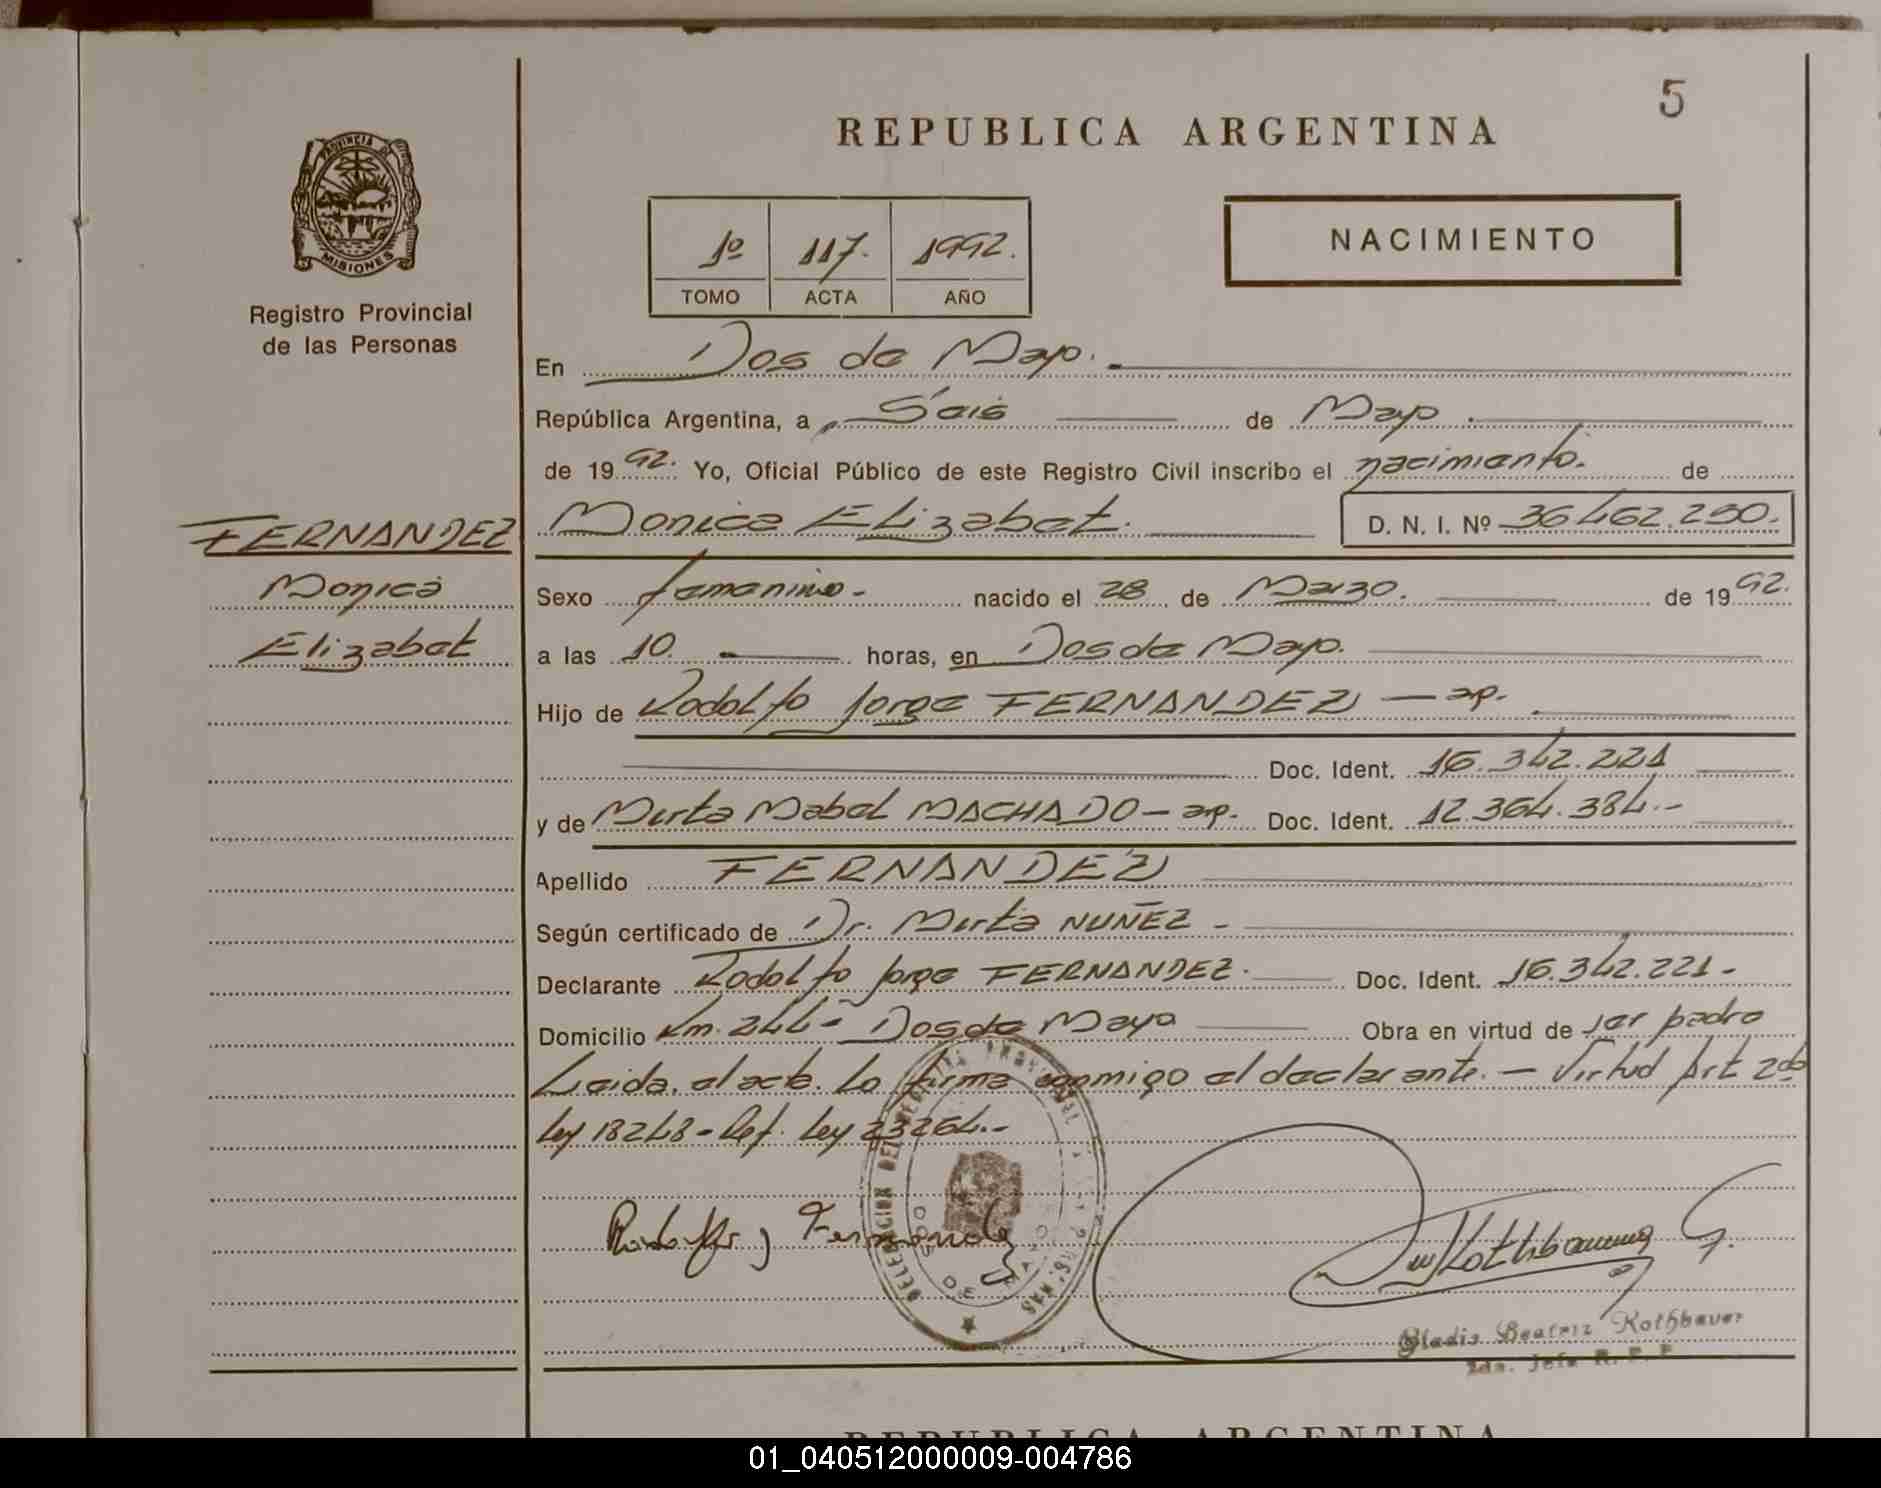 5
REPUBLICA ARGENTINA
PROVINCIA DE
MISIONES
Registro Provincial
de las Personas
1º 117. 1992.
TOMO ACTA AÑO
NACIMIENTO
En Dos de Mayo.
República Argentina, a Seis de Mayo.
de 1992. Yo, Oficial Público de este Registro Civil inscribo el nacimiento. de
FERNANDEZ
Monica
Elizabet
Monica Elizabet. D. N. I. Nº 36462.250.
Sexo femenino. nacido el 28 de Marzo. de 1992.
a las 10 horas, en Dos de Mayo.
Hijo de Rodolfo Jorge FERNANDEZ — ap.
Doc. Ident. 16.342.221
y de Mirta Mabel MACHADO — ap. Doc. Ident. 12.364.384.-
Apellido FERNANDEZ
Según certificado de Dr. Mirta NUÑEZ -
Declarante Rodolfo Jorge FERNANDEZ. Doc. Ident. 16.342.221-
Domicilio Km. 244- Dos de Mayo Obra en virtud de ser padre
Leida. el acta. La firma conmigo el declarante. — Virtud Art 2do
Ley 18248 - Ref. Ley 23264.-
Rodolfo J Fernandez
Gladis Beatriz Rothbauer
2da. Jefa R. P. P.
REPUBLICA ARGENTINA
01_040512000009-004786